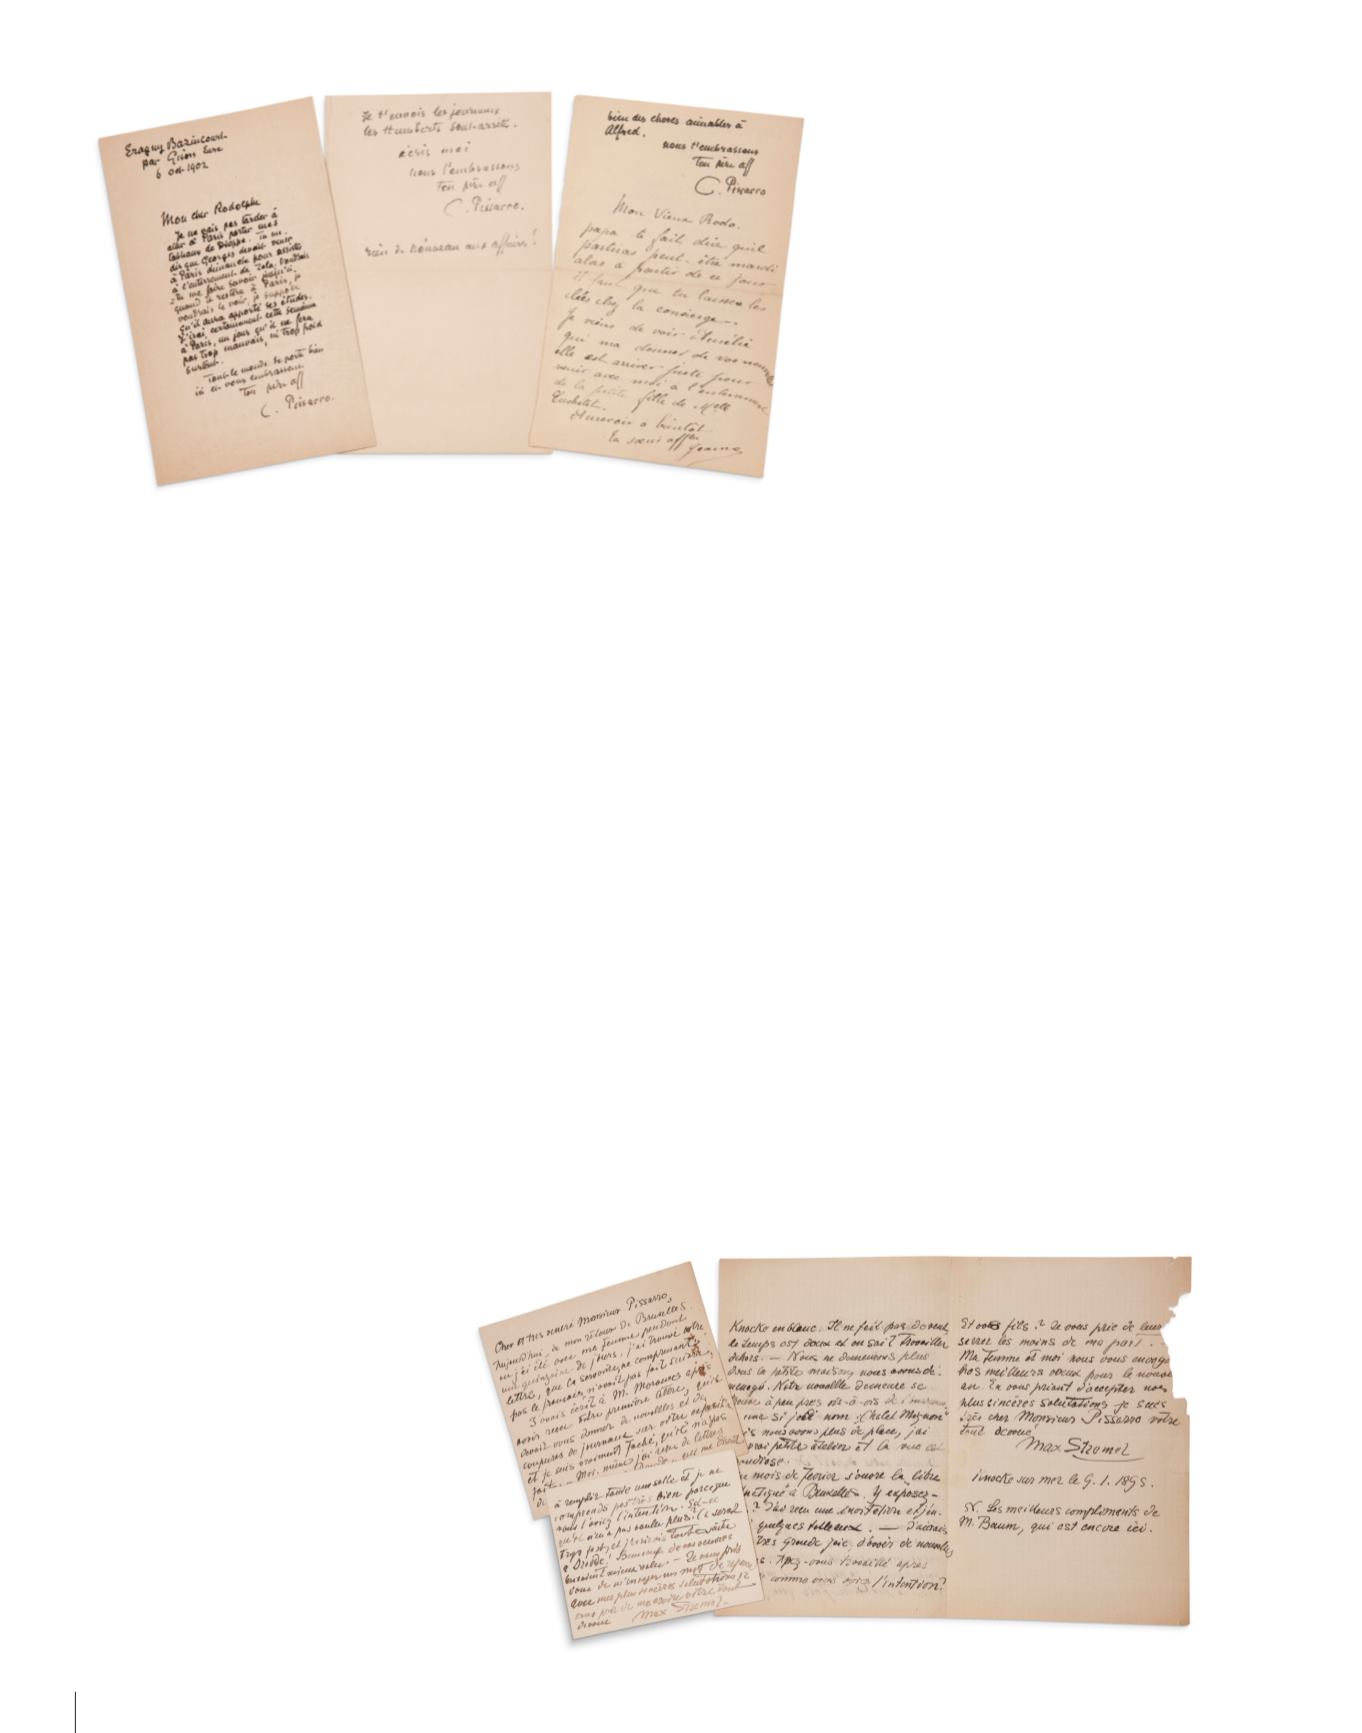 Eragny Bazincourt
par Gisors Eure
6 Oct 1902
Mon cher Rodolphe
Je ne vais pas tarder à
aller à Paris porter mes
tableaux de Dieppe. Tu me
dis que Georges devait venir
à Paris dimanche pour assister
à l'enterrement de Zola, voudrais
tu me faire savoir jusqu'à
quand il restera à Paris, je
voudrais le voir, je suppose
qu'il aura apporté ses études.
J'irai certainement cette semaine
à Paris, un jour qu'il ne fera
pas trop mauvais, ni trop froid
surtout.
Tout le monde se porte bien
ici et vous embrassent
Ton père aff
C. Pissarro.
Je t'envois les journaux
les Humberts sont arretés.
écris moi
nous t'embrassons
Ton père aff
C. Pissarro.
rien de nouveau aux affaires?
bien des choses aimables à
Alfred.
nous t'embrassons
Ton père aff
C. Pissarro
Mon Vieux Rodo.
papa te fait dire qu'il
partiras peut-être mardi
alors à partir de ce jour
Il faut que tu laisses les
clées chez la concierge.
Je viens de voir Amélie
qui ma donner de vos nouvelles
elle est arriver juste pour
venir avec moi a l'enterrement
de la petite fille de Melle
Aurevoir a bientôt
ta sœur affen
Jeanne
Cher et très vénéré Monsieur Pissarro,
Aujourd'hui de mon retour de Bruxelles
ou j'ai été avec ma femme pendant
une quinzaine de jours, j'ai trouvé votre
lettre, que la servante ne comprenant
pas le français, n'avait pas fait suivre.
J'avais écrit à M. après
avoir recu votre première lettre, qu'il
devait vous donner de nouvelles et des
coupures de journaux sur votre exposition
et je suis vraiment faché, qu'il n'a pas
fait. — Moi-même j'ai de lettres
à remplir toute une salle et je ne
comprends pas très bien parceque
vous l'aviez l'intention. Est-ce
qu'il n'en a pas voulu plus? Ce serait
trop fort, et j'écrirais tout de suite
à Dresde! Beaucoup de vos oeuvres
auraient mieux valu. — Je vous prie
donc de m'envoyer un mot de réponse
avec mes plus sincères salutations je
vous prie de me croire votre tout
dévoué Max Stremel.
Knocke en blanc. Il ne fait pas de vent,
le temps est doux et on sait travailler
dehors. — Nous ne demeurons plus
dans la petite maison, nous avons dé-
menagé. Notre nouvelle demeure se
trouve à peu près vis-à-vis de
une si joli nom: "Chalet Mignon"
nous avons plus de place, j'ai
vrai petite atelier et la vue est
mois de février s'ouvre la libre
à Bruxelles. Y exposez-
? J'ai recu une invitation et j'en-
quelques tableaux. — J'aurais
très grande joie, d'avoir de nouvelles
. Avez-vous travaillé après
comme vous aviez l'intention?
Et vos fils? Je vous prie de leur
serrer les mains de ma part.
Ma femme et moi nous vous envoyons
nos meilleurs voeux pour le nouvel
an. En vous priant d'accepter nos
plus sincères salutations je suis
très cher Monsieur Pissarro votre
tout dévoué
Max Stremel
Knocke sur mer le 9. 1. 1895.
N. Les meilleurs compliments de
M. Baum, qui est encore ici.